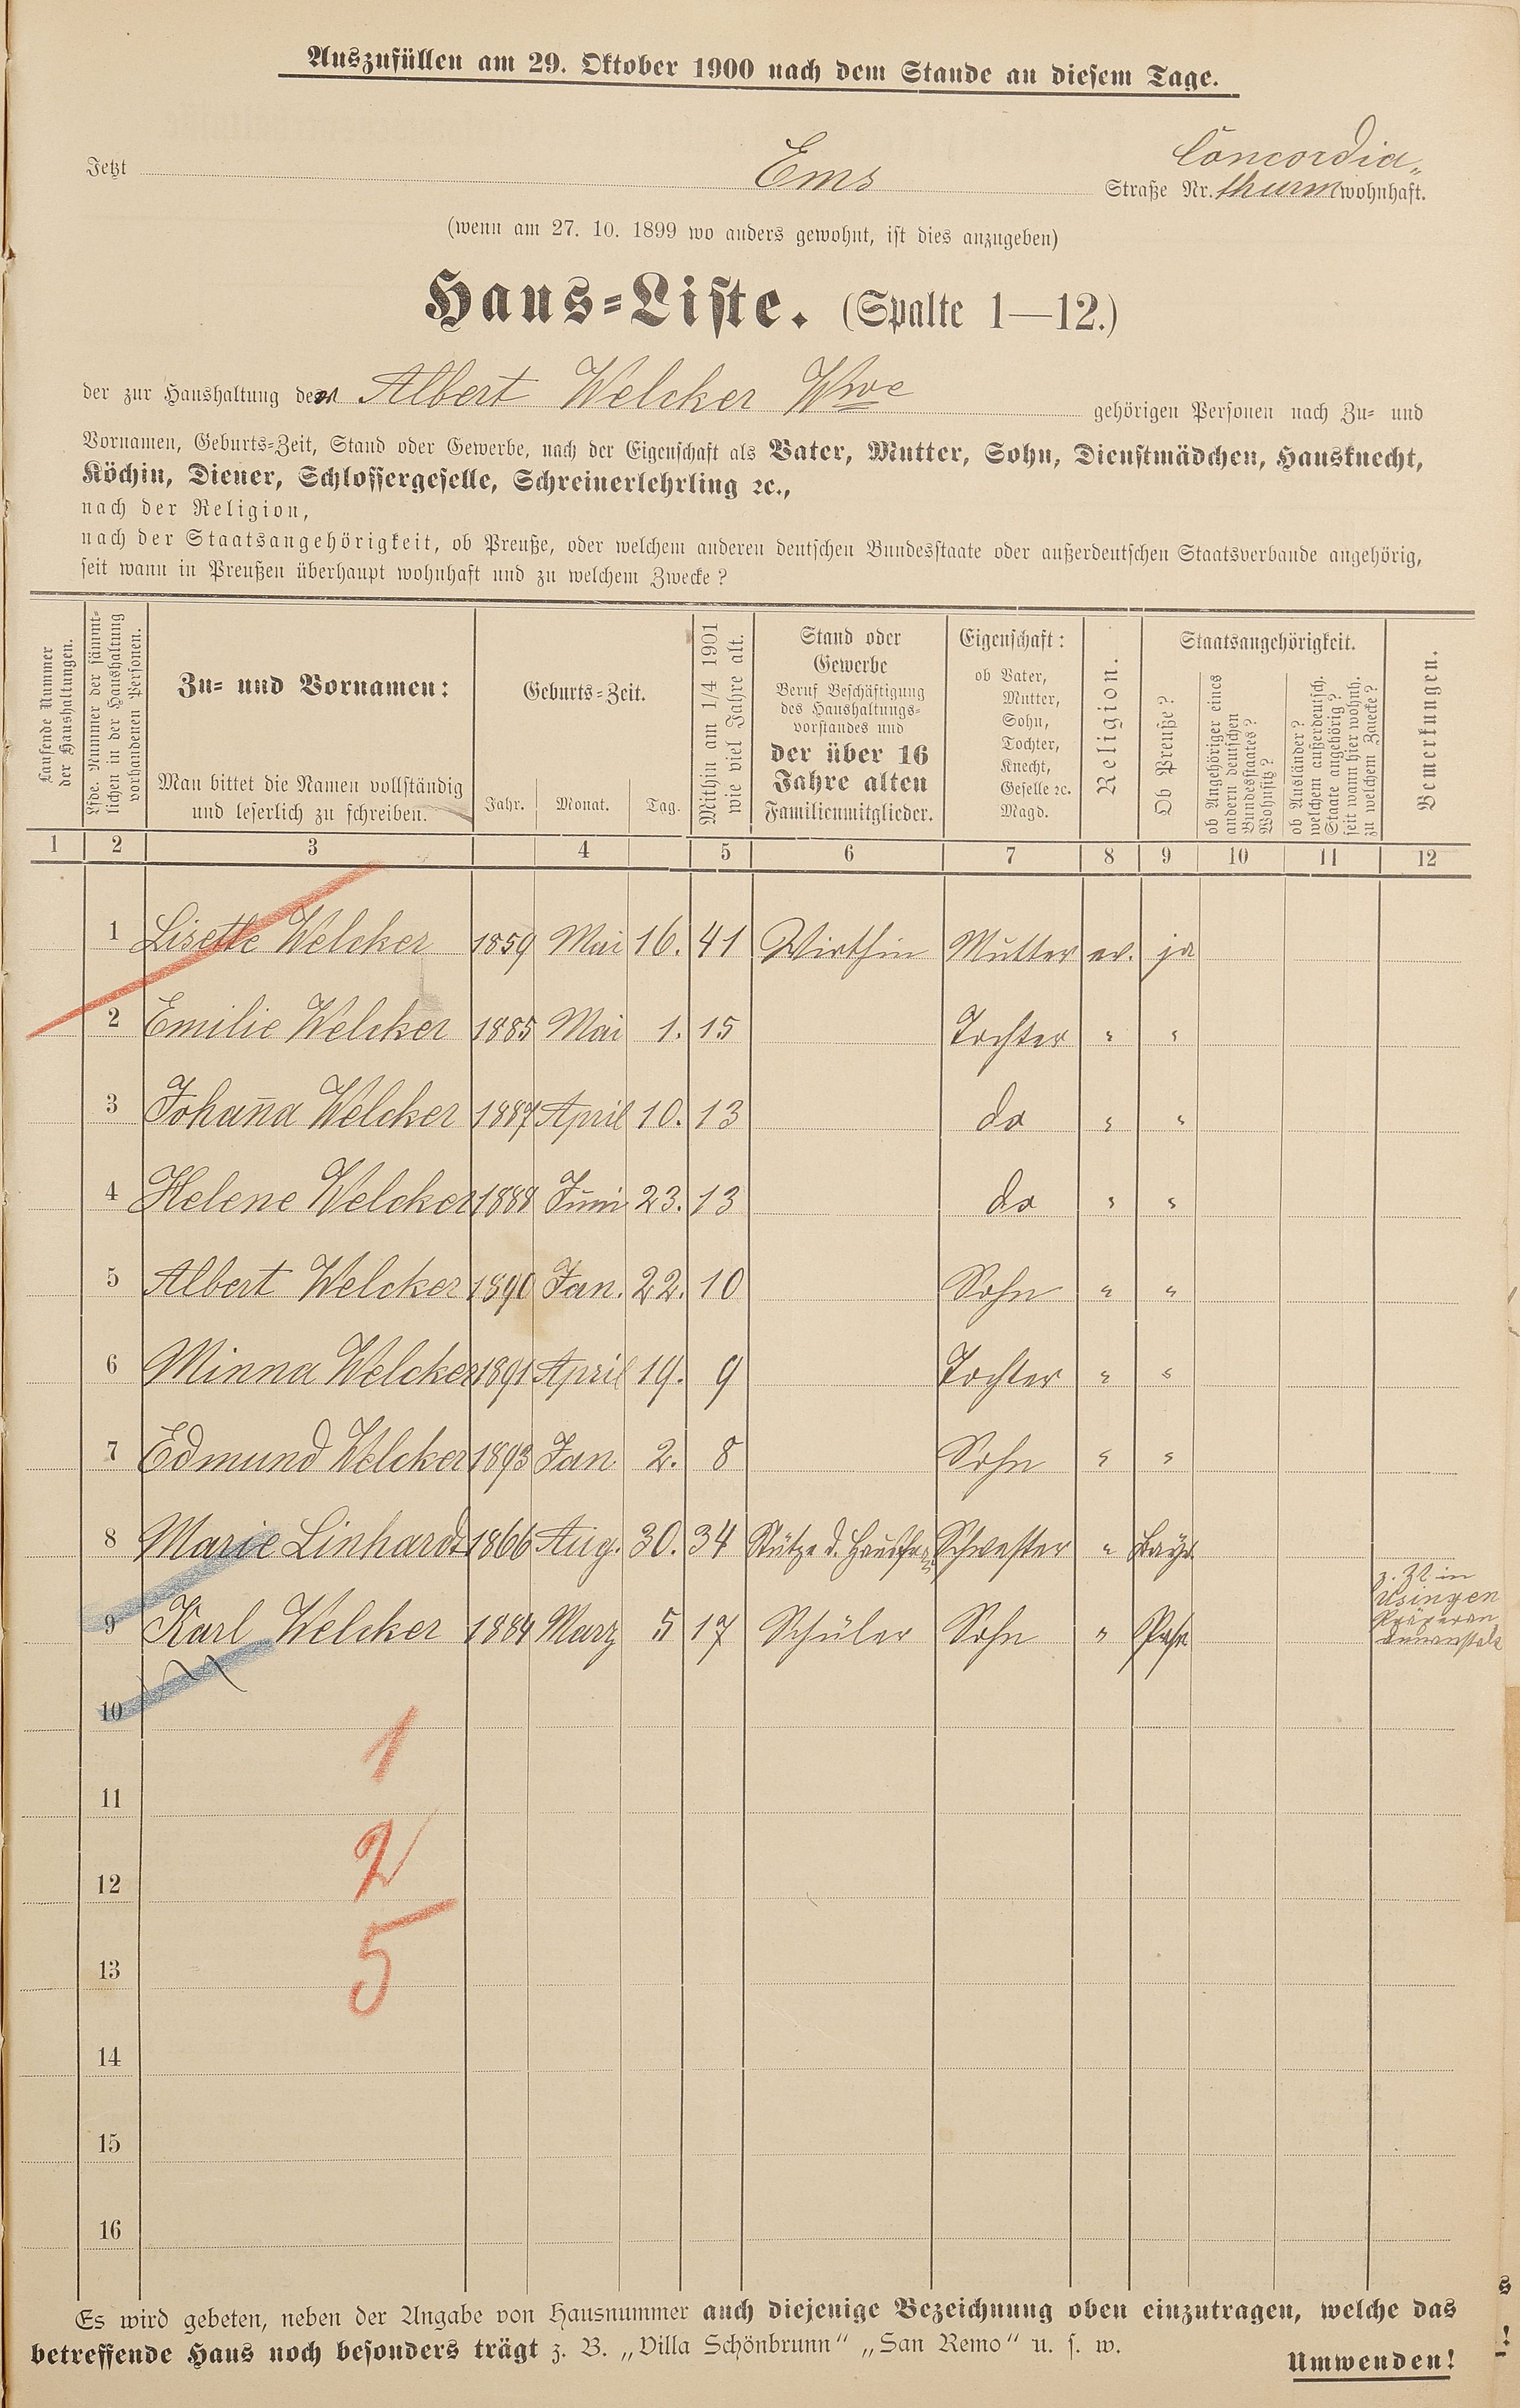 Auszufüllen am 29. Oktober 1900 nach dem Stande an diesem Tage.
Concordia„
Jetzt Ems Straße Nr. thurm wohnhaft.
(wenn am 27. 10. 1899 wo anders gewohnt, ist dies anzugeben)
Haus=Liste. (Spalte 1—12.)
der zur Haushaltung der Albert Welcker Wwe gehörigen Personen nach Zu= und
Vornamen, Geburts=Zeit, Stand oder Gewerbe, nach der Eigenschaft als Vater, Mutter, Sohn, Dienstmädchen, Hausknecht,
Köchin, Diener, Schlossergeselle, Schreinerlehrling ꝛc.,
nach der Religion,
nach der Staatsangehörigkeit, ob Preuße, oder welchem anderen deutschen Bundesstaate oder außerdeutschen Staatsverbande angehörig,
seit wann in Preußen überhaupt wohnhaft und zu welchem Zwecke?
Laufende Nummer
der Haushaltungen.
Lfde. Nummer der sämmt=
lichen in der Haushaltung
vorhandenen Personen.
Zu= und Vornamen:
Man bittet die Namen vollständig
und leserlich zu schreiben.
Geburts=Zeit.
Jahr. Monat. Tag.
Mithin am 1/4 1901
wie viel Jahre alt.
Stand oder
Gewerbe
Beruf Beschäftigung
des Haushaltungs=
vorstandes und
der über 16
Jahre alten
Familienmitglieder.
Eigenschaft:
ob Vater,
Mutter,
Sohn,
Tochter,
Knecht,
Geselle ꝛc.
Magd.
Religion.
Staatsangehörigkeit.
Ob Preuße?
ob Angehöriger eines
andern deutschen
Bundesstaates?
Wohnsitz?
ob Ausländer?
welchem außerdeutsch.
Staate angehörig?
seit wann hier wohnh.
zu welchem Zwecke?
Bemerkungen.
1 2 3 4 5 6 7 8 9 10 11 12
1 Lisette Welcker 1859 Mai 16. 41 Wirthin Mutter ev. ja
2 Emilie Welcker 1885 Mai 1. 15 Tochter " "
3 Johan̄a Welcker 1887 April 10. 13 do " "
4 Helene Welcker 1888 Juni 23. 13 do " "
5 Albert Welcker 1890 Jan. 22. 10 Sohn " "
6 Minna Welcker 1891 April 19. 9 Tochter " "
7 Edmund Welcker 1893 Jan. 2. 8 Sohn " "
8 Marie Linhards 1866 Aug. 30. 34 Stütze d. Hausfrau Schwester " Bayr.
z. Zt in
Usingen
9 Karl Welcker 1884 März 5 17 Schüler Sohn "
Präparan
denanstalt
10
1
11
2
12
5
13
14
15
16
Es wird gebeten, neben der Angabe von Hausnummer auch diejenige Bezeichnung oben einzutragen, welche das
betreffende Haus noch besonders trägt z. B. „Villa Schönbrunn“ „San Remo“ u. s. w.
Umwenden!